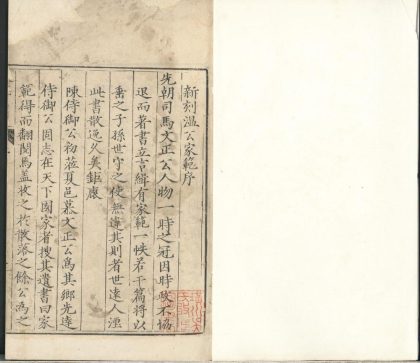 新刻溫公家範序
先朝司馬文正公人物一時之冠因時政不協
退而著書立言緝有家範一帙若干篇將以
垂之子孫世守之使無違其則者世遠人湮
此書散逸久矣鉅鹿
陳侍御公初蒞夏邑慕文正公為其鄉先達
侍御公固志在天下國家者搜其遺書曰家
範得而翻閱焉蓋收之於散落之餘公為之